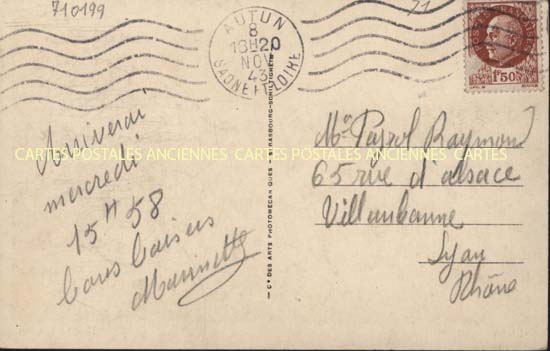 710199
71
AUTUN
8
18H20
NOV
43
SAONE ET LOIRE
1F50
Arriverai
mercredi
15H 58
bons baisers
CARTES POSTALES ANCIENNES CARTES POSTALES ANCIENNES CARTES
Cie DES ARTS PHOTOMÉCANIQUES - STRASBOURG-SCHILTIGHEIM
Raymond
65 rue d'alsace
Villeurbanne
Lyon
Rhône